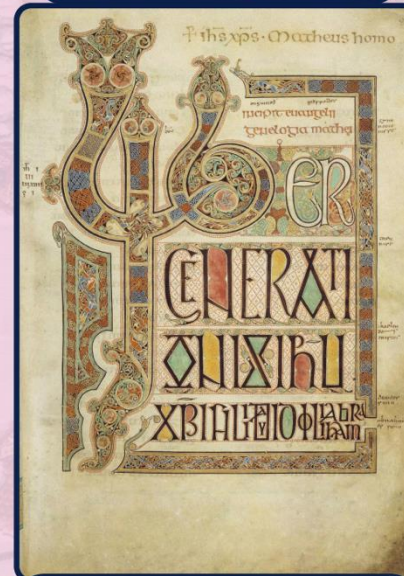 † ihs xps · Matheus homo
incipit euangelii
genelogia mathei
LIBER
GENERATI
ONIS IHU
XPI FILII DAVID FILII ABRAHAM